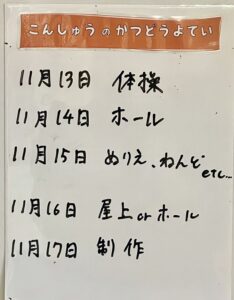 こんしゅうのかつどうよてい
11月13日 体操
11月14日 ホール
11月15日 ぬりえ、ねんど
etc...
11月16日 屋上orホール
11月17日 制作